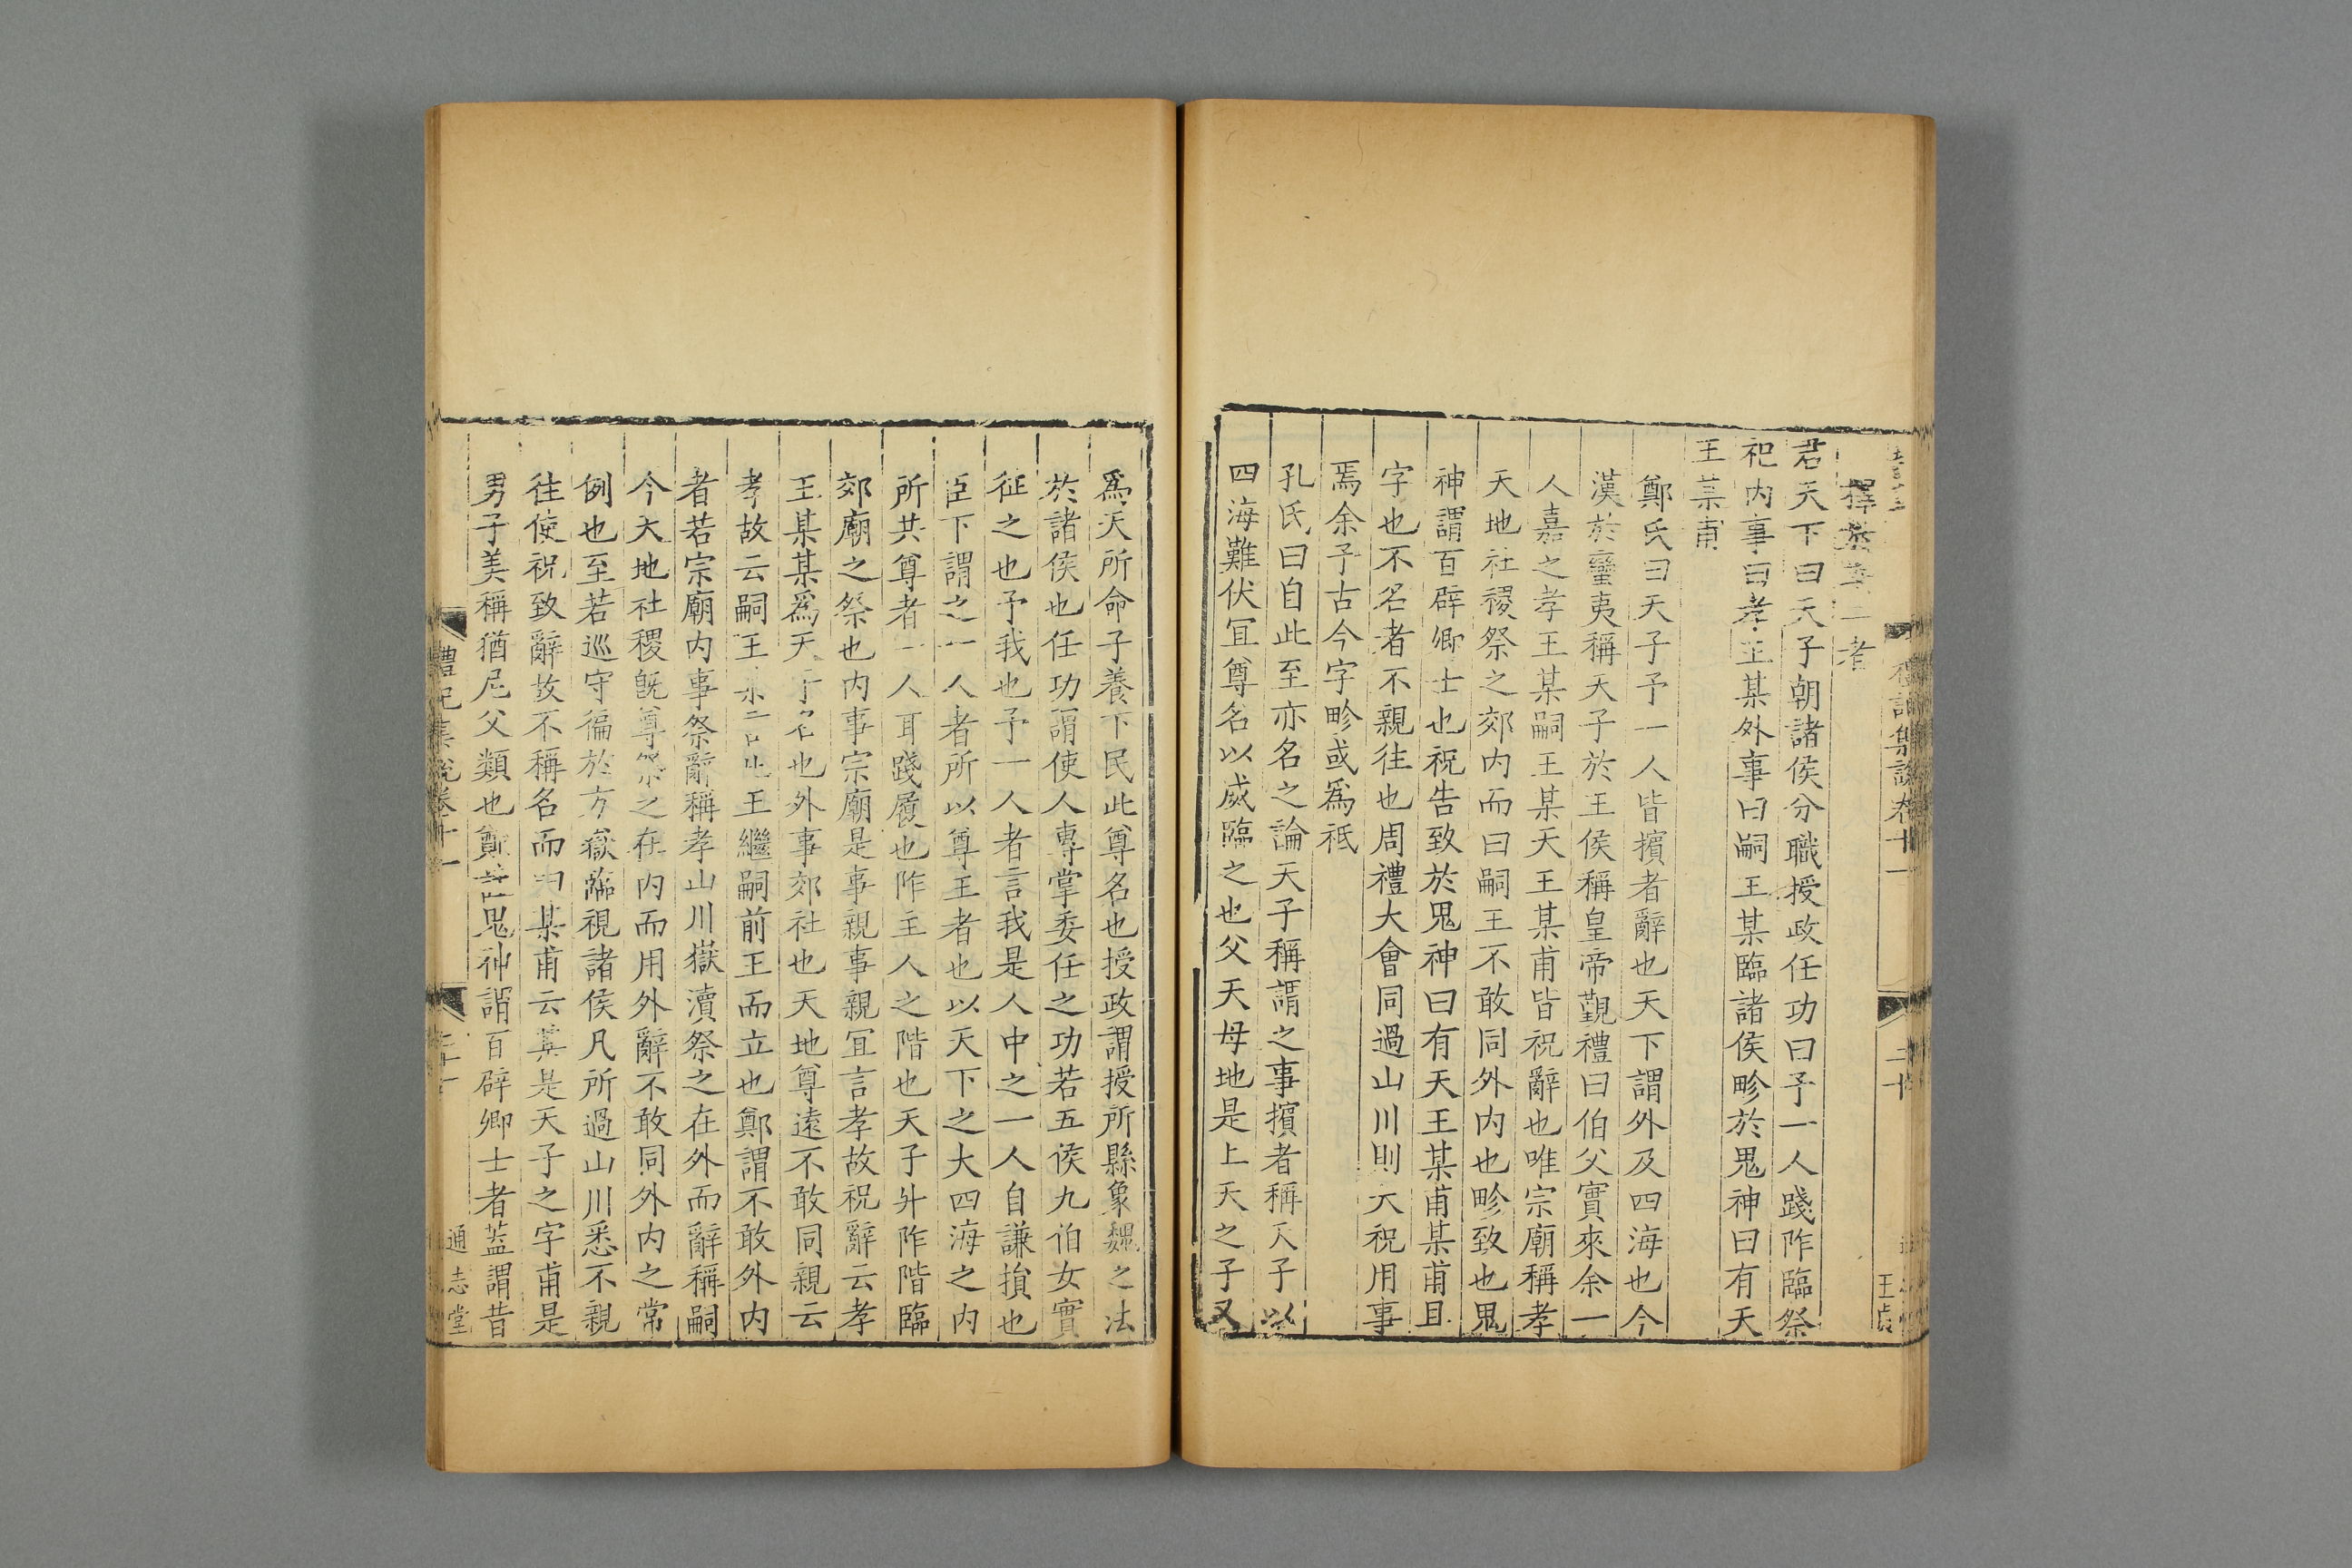 禮記集說卷十一
二十
王貞
擇 二者
君天下曰天子朝諸侯分職授政任功曰予一人踐阼臨祭
祀內事曰孝王某外事曰嗣王某臨諸侯畛於鬼神曰有天
王某甫
鄭氏曰天子予一人皆擯者辭也天下謂外及四海也今
漢於蠻夷稱天子於王侯稱皇帝覲禮曰伯父實來余一
人嘉之孝王某嗣王某天王某甫皆祝辭也唯宗廟稱孝
天地社稷祭之郊內而曰嗣王不敢同外內也畛致也鬼
神謂百辟卿士也祝告致於鬼神曰有天王某甫某甫且
字也不名者不親往也周禮大會同過山川則大祝用事
焉余予古今字畛或爲祗
孔氏曰自此至亦名之論天子稱謂之事擯者稱天子以
四海難伏宜尊名以威臨之也父天母地是上天之子又
爲天所命子養下民此尊名也授政謂授所縣象魏之法
於諸侯也任功謂使人專掌委任之功若五侯九伯女實
征之也予我也予一人者言我是人中之一人自謙損也
臣下謂之一人者所以尊王者也以天下之大四海之內
所共尊者一人耳踐履也阼主人之階也天子升阼階臨
郊廟之祭也內事宗廟是事親事親宜言孝故祝辭云孝
王某某爲天子名也外事郊社也天地尊遠不敢同親云
孝故云嗣王某言此王繼嗣前王而立也鄭謂不敢外內
者若宗廟內事祭辭稱孝山川嶽瀆祭之在外而辭稱嗣
今天地社稷旣尊祭之在內而用外辭不敢同外內之常
例也至若巡守徧於方嶽臨視諸侯凡所過山川悉不親
往使祝致辭故不稱名而曰某甫云某是天子之字甫是
男子美稱猶尼父類也鄭 鬼神謂百辟卿士者蓋謂昔
禮記集說卷十一
二十一
通志堂